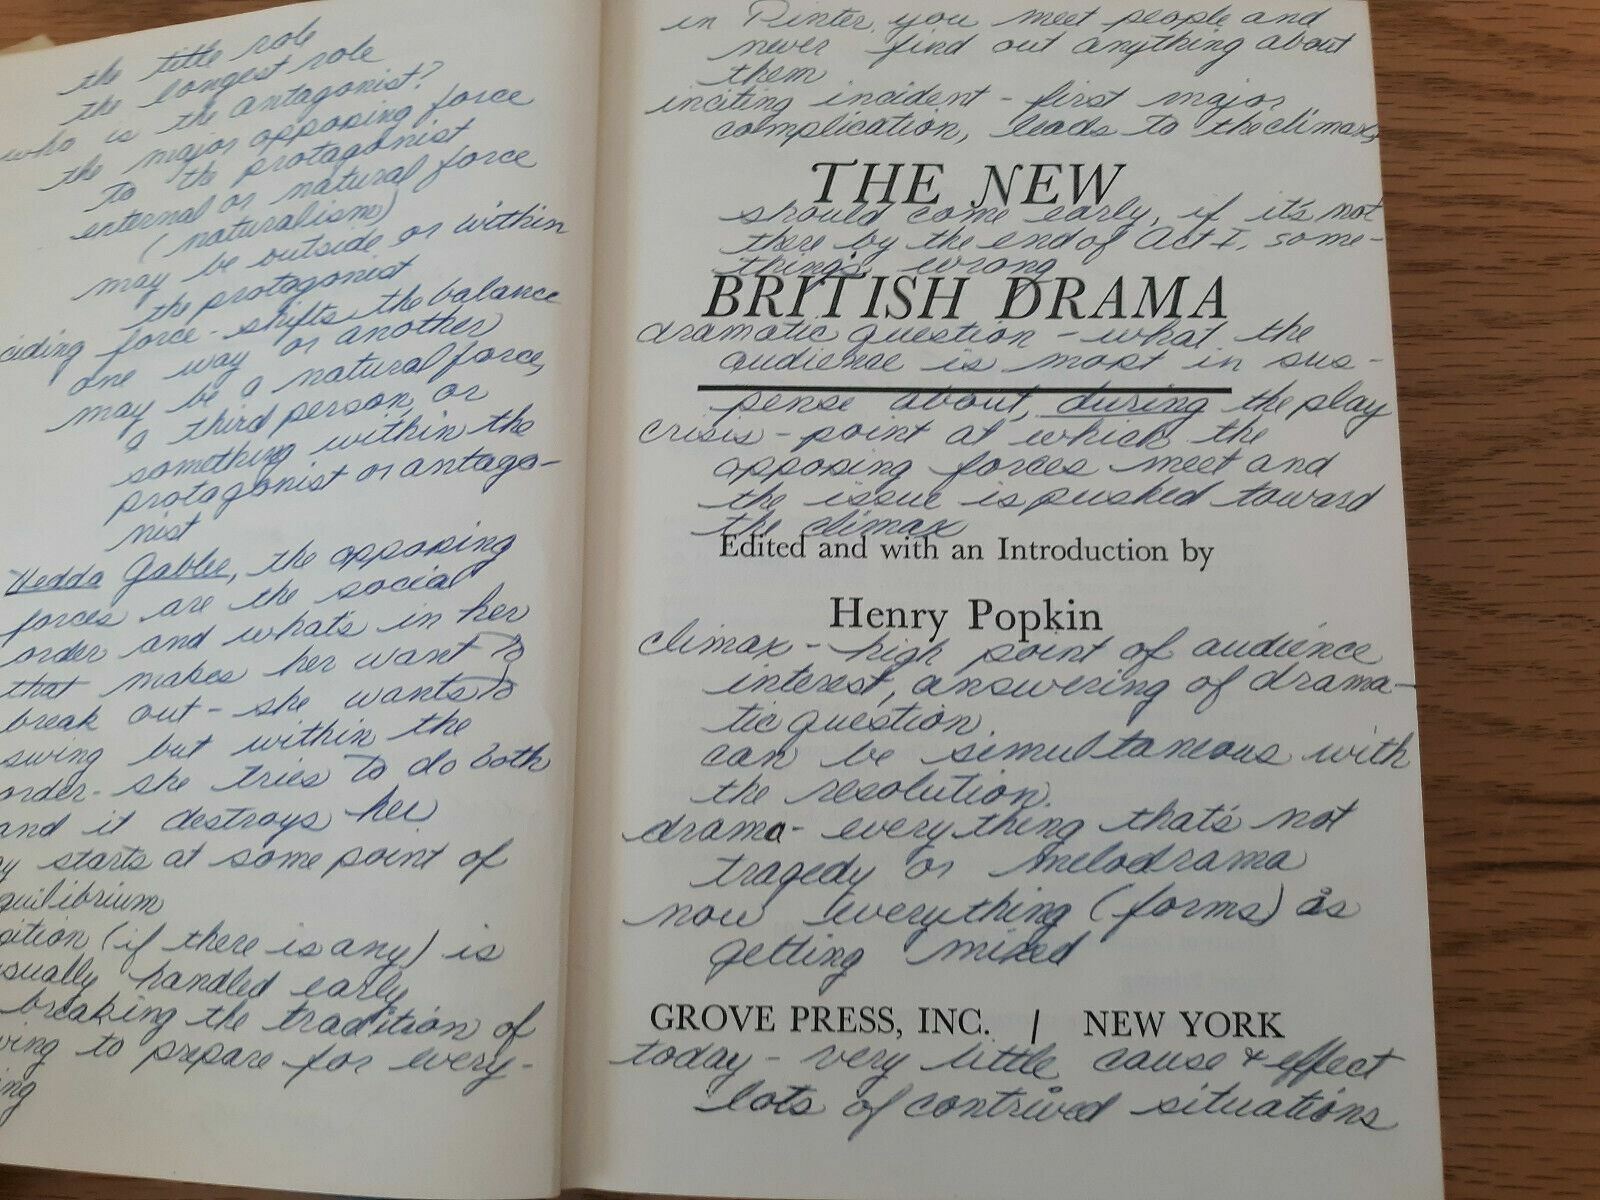 the title role
the longest role
who is the antagonist?
the major opposing force
to the protagonist
external or natural force
(naturalism)
may be outside or within
the protagonist
ciding force - shifts the balance
one way or another
may be a natural force,
a third person, or
something within the
protagonist or antago-
nist
Hedda Gabler, the opposing
forces are the social
order and what's in her
that makes her want to
break out - she wants to
swing but within the
order - she tries to do both
and it destroys her
y starts at some point of
quilibrium
sition (if there is any) is
sually handled early
breaking the tradition of
ving to prepare for every-
ing
in Pinter, you meet people and
never find out anything about
them
inciting incident - first major
complication, leads to the climax,
THE NEW
should come early, if it's not
there by the end of Act I, some-
thing's wrong
BRITISH DRAMA
dramatic question - what the
audience is most in sus-
pense about, during the play
crisis - point at which the
opposing forces meet and
the issue is pushed toward
the climax
Edited and with an Introduction by
Henry Popkin
climax - high point of audience
interest, answering of drama-
tic question.
can be simultaneous with
the resolution.
drama - everything that's not
tragedy or melodrama
now everything (forms) is
getting mixed
GROVE PRESS, INC. / NEW YORK
today - very little cause & effect
lots of contrived situations